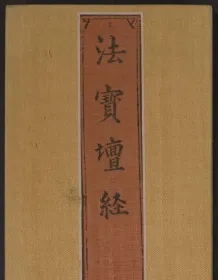 法寶壇経